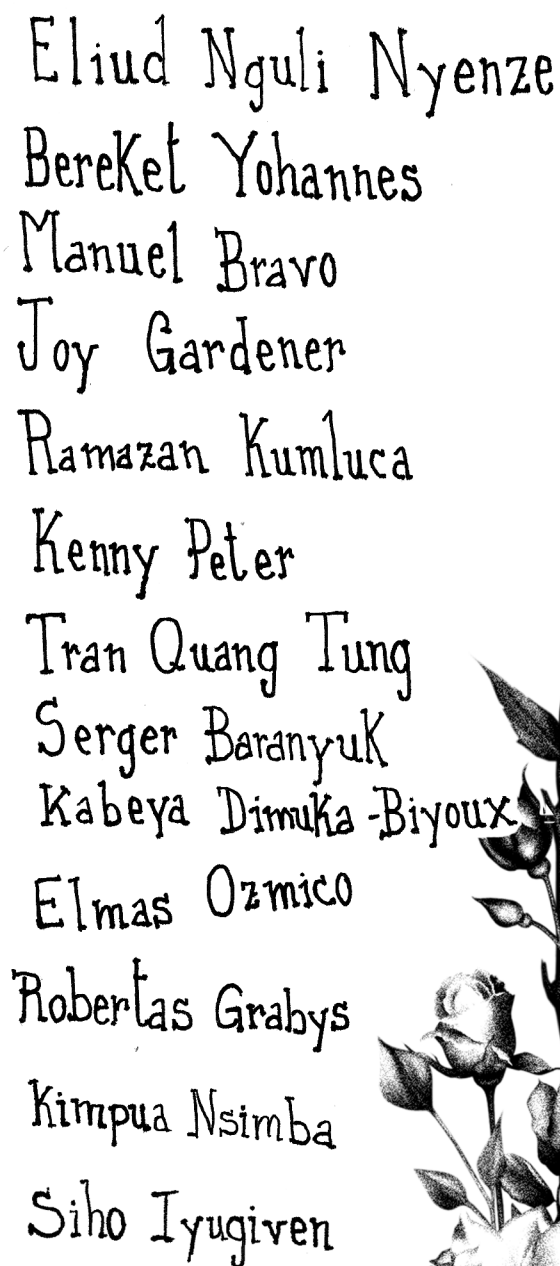 Eliud Nguli Nyenze
Bereket Yohannes
Manuel Bravo
Joy Gardener
Ramazan Kumluca
Kenny Peter
Tran Quang Tung
Serger Baranyuk
Kabeya Dimuka-Biyoux
Elmas Ozmico
Robertas Grabys
Kimpua Nsimba
Siho Iyugiven